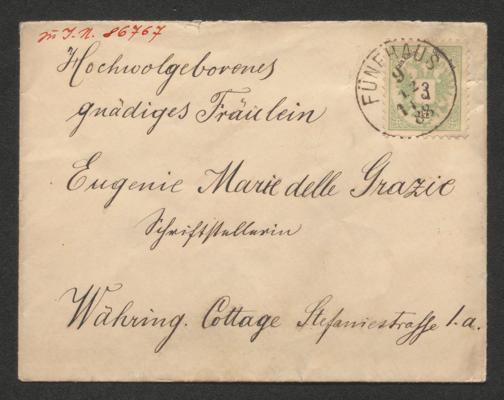 zu I.N. 86767
Hochwolgeborenes
gnädiges Fräulein
FÜNFHAUS
Eugenie Marie delle Grazie
Schriftstellerin
Währing. Cottage Stefaniestrasse 1.a.